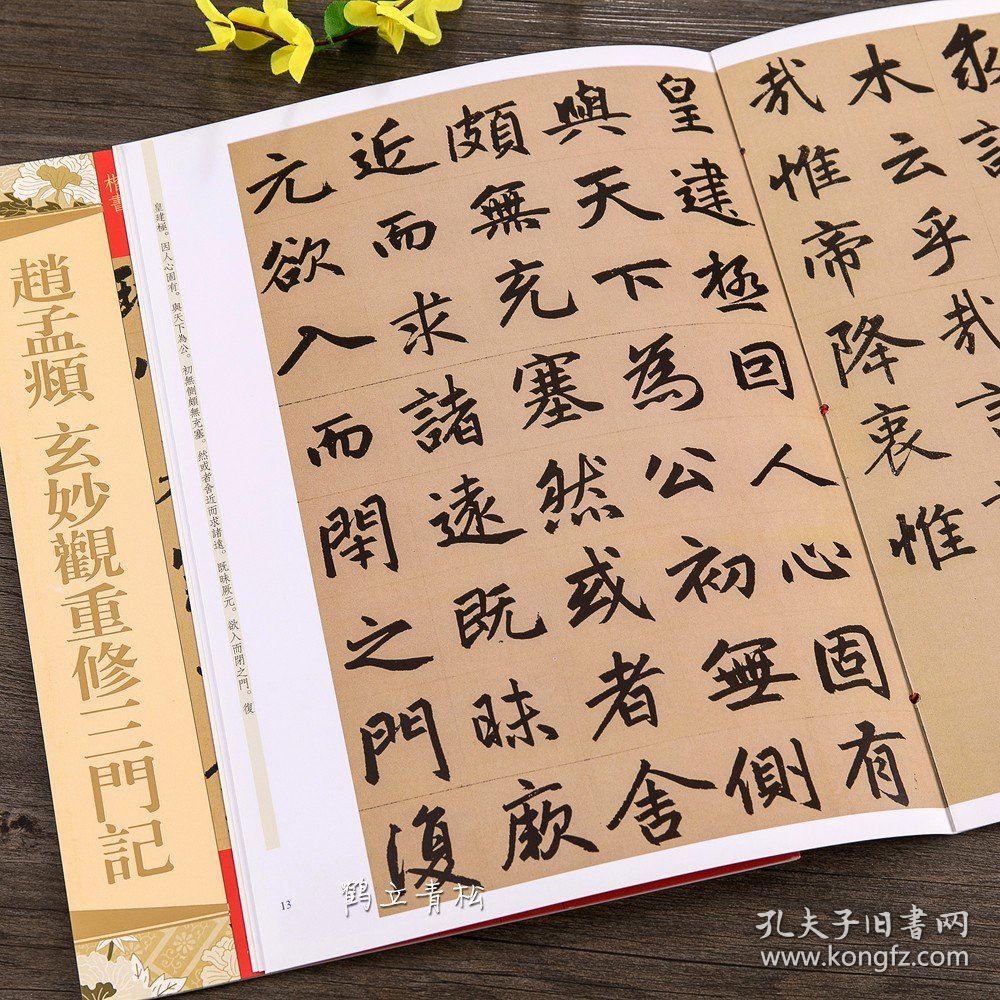 楷書
趙孟頫 玄妙觀重修三門記
皇建極。因人心固有。與天下為公。初無側頗無充塞。然或者舍近而求諸遠。既昧厥元。欲入而閉之門。復
木云乎哉
哉惟帝降衷惟
皇建極回人心固有
與天下為公初無側
頗無充塞然或者舍
近而求諸遠既昧厥
元欲入而閈之門復
13
鹤立青松
孔夫子旧書网
www.kongfz.com